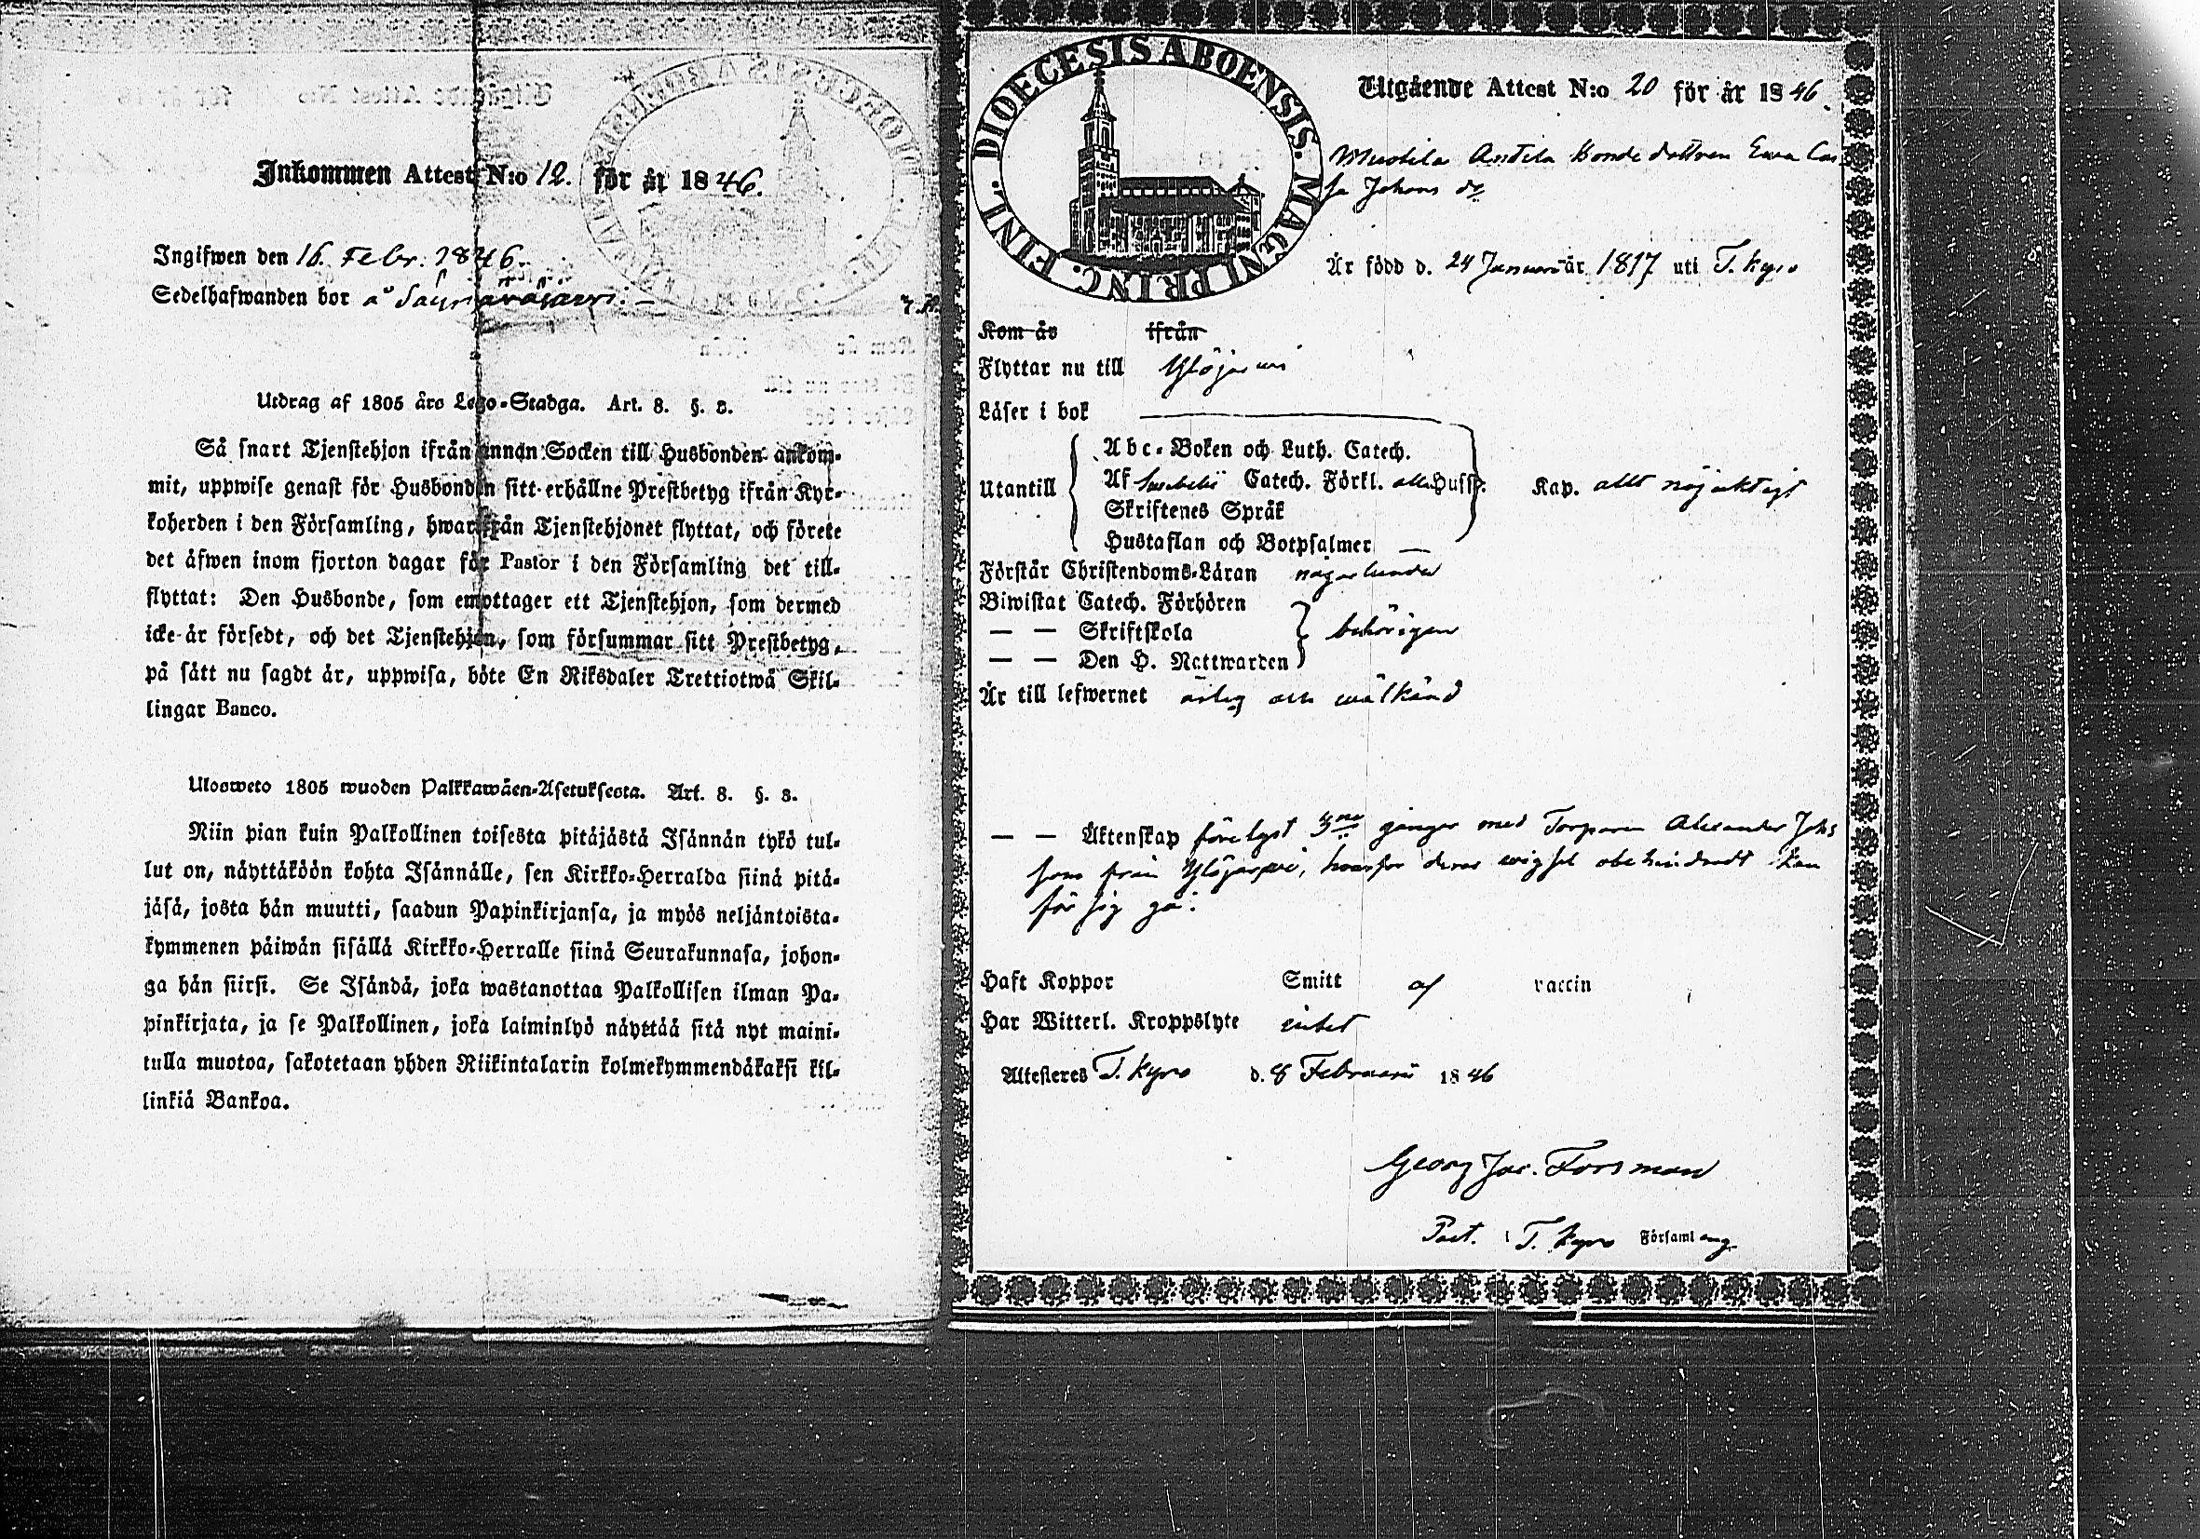 Inkommen Attest N:o 12. för år 1846.
Ingifwen den 16. Febr. 1846.
Sedelhafwanden bor å
Utdrag af 1805 års Lego-Stadga. Art. 8. §. 8.
Så snart Tjenstehjon ifrån annan Socken till Husbonden ankom-
mit, uppwise genast för Husbonden sitt erhållne Prestbetyg ifrån Kyr-
koherden i den Församling, hwarifrån Tjenstehjonet flyttat, och förete
det äfwen inom fjorton dagar för Pastor i den Församling det till-
flyttat: Den Husbonde, som emottager ett Tjenstehjon, som dermed
icke är försedt, och det Tjenstehjon, som försummar sitt Prestbetyg,
på sätt nu sagdt är, uppwisa, böte En Riksdaler Trettiotwå Skil-
lingar Banco.
Ulosweto 1805 wuoden Palkkawäen-Asetuksesta. Art. 8. §. 8.
Niin pian kuin Palkollinen toisesta pitäjästä Isännän tykö tul-
lut on, näyttäköön kohta Isännälle, sen Kirkko-Herralda siinä pitä-
jäsä, josta hän muutti, saadun Papinkirjansa, ja myös neljäntoista-
kymmenen päiwän sisällä Kirkko-Herralle siinä Seurakunnasa, johon-
ga hän siirsi. Se Isändä, joka wastanottaa Palkollisen ilman Pa-
pinkirjata, ja se Palkollinen, joka laiminlyö näyttää sitä nyt maini-
tulla muotoa, sakotetaan yhden Riikintalarin kolmekymmendäkaksi kil-
linkiä Bankoa.
FINL. DIOECESIS ABOENSIS. MAGNI PRINC.
Utgående Attest N:o 20 för år 1846.
Mustila Antila Bonde dottren Eva Cai
sa Johans dr
Är född d. 24 Januari år 1817 uti T. Kyro
Kom år ifrån
Flyttar nu till Ylöjärvi
Läser i bok
Utantill
Abc-Boken och Luth. Catech.
Af Catech. Förkl. alla Hufst. Kap. allt nöjaktigt
Skriftenes Språk
Hustaflan och Botpsalmer —
Förstår Christendoms-Läran någorlunda
Biwistat Catech. Förhören
— — Skriftskola behörigen
— — Den H. Nattwarden
Är till lefwernet ärlig och wälkänd
— — Äktenskap förelyst 3ne gånger med Torparen Alexander Johs
son från Ylöjärvi, hvarför deras wigsel obehindradt kan
för sig gå.
Haft Koppor Smitt af vaccin
Har Witterl. Kroppslyte intet
Attesteres T. Kyro d. 8 Februarii 1846
Georg Jac. Forsman
Past. i T. Kyro Församling